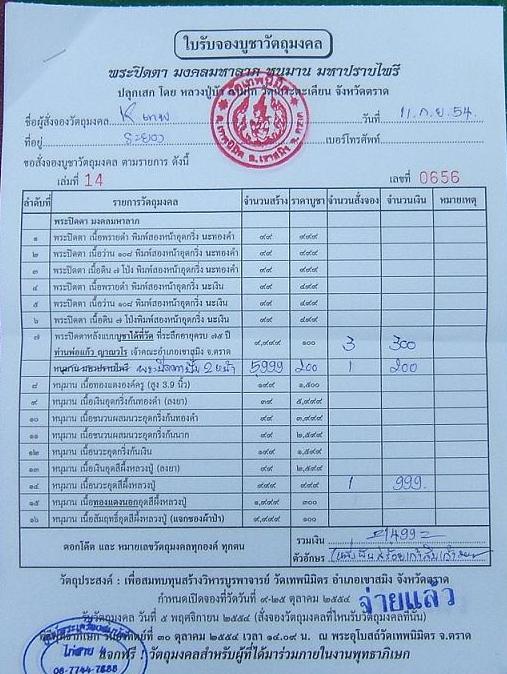 ใบรับจองบูชาวัตถุมงคล
พระปิดตา มงคลมหาลาภ หนุมาน มหาปราบไพรี
ปลุกเสก โดย หลวงปู่บัว จังหวัดตราด
ชื่อผู้สั่งจองวัตถุมงคล วันที่ 11 ก.ย. 54
ที่อยู่ ระยอง เบอร์โทรศัพท์
ขอสั่งจองบูชาวัตถุมงคล ตามรายการ ดังนี้
เล่มที่ 14 เลขที่ 0656
ลำดับที่ รายการวัตถุมงคล จำนวนสร้าง ราคาบูชา จำนวนสั่งจอง จำนวนเงิน หมายเหตุ
พระปิดตา มงคลมหาลาภ
๑ พระปิดตา เนื้อพรายดำ พิมพ์สองหน้าอุดกริ่ง นะทองคำ ๙๙ ๙๙๙
๒ พระปิดตา เนื้อว่าน ๑๐๘ พิมพ์สองหน้าอุดกริ่ง นะทองคำ ๙๙ ๙๙๙
๓ พระปิดตา เนื้อดิน ๗ โป่ง พิมพ์สองหน้าอุดกริ่ง นะทองคำ ๙๙ ๙๙๙
๔ พระปิดตา เนื้อพรายดำ พิมพ์สองหน้าอุดกริ่ง นะเงิน ๙๙ ๔๙๙
๕ พระปิดตา เนื้อว่าน ๑๐๘ พิมพ์สองหน้าอุดกริ่ง นะเงิน ๙๙ ๔๙๙
๖ พระปิดตา เนื้อดิน ๗ โป่งพิมพ์สองหน้าอุดกริ่ง นะเงิน ๙๙ ๔๙๙
๗ พระปิดตาหลังแบบบูชาได้ที่วัด ที่ระลึกอายุครบ ๗๕ ปี ๙,๙๙๙ ๑๐๐ 3 300
ท่านพ่อแก้ว ญาณวโร เจ้าคณะอำเภอเขาสมิง จ.ตราด
หนุมาน มหาปราบไพรี พระปิดตา 2 หน้า 5,999 200 1 200
๘ หนุมาน เนื้อทองแดงองค์ครู (สูง 3.9 นิ้ว) ๑๙๙ ๑,๕๐๐
๙ หนุมาน เนื้อเงินอุดกริ่งก้นทองคำ (ลงยา) ๓๙ ๕,๙๙๙
๑๐ หนุมาน เนื้อชนวนผสมนวะอุดกริ่งก้นทองคำ ๙๙
๑๑ หนุมาน เนื้อชนวนผสมนวะอุดกริ่งก้นนาก ๙๙ ๒,๕๙๙
๑๒ หนุมาน เนื้อนวะอุดกริ่งก้นเงิน ๑๙๙ ๑,๕๙๙
๑๓ หนุมาน เนื้อเงินอุดสีผึ้งหลวงปู่ (ลงยา) ๙๙ ๒,๕๙๙
๑๔ หนุมาน เนื้อนวะอุดสีผึ้งหลวงปู่ ๙๙๙ ๙๙๙ 1 999
๑๕ หนุมาน เนื้อทองแดงนอกอุดสีผึ้งหลวงปู่ ๑,๙๙๙ ๓๐๐
๑๖ หนุมาน เนื้อสัมฤทธิ์อุดสีผึ้งหลวงปู่ (แจกซองผ้าป่า) ๙,๙๙๙ ๑๐๐
ตอกโค๊ต และ หมายเลขวัตถุมงคลทุกองค์ ทุกตน รวมเงิน =1499=
ตัวอักษร
วัตถุประสงค์ : เพื่อสมทบทุนสร้างวิหารบูรพาจารย์ วัดเทพนิมิตร อำเภอเขาสมิง จังหวัดตราด
กำหนดเปิดจองที่วัดวันที่ ๙-๒๕ ตุลาคม ๒๕๕๔ จ่ายแล้ว
รับวัตถุมงคล วันที่ ๕ พฤศจิกายน ๒๕๕๔ (สั่งจองวัตถุมงคลที่ไหนรับวัตถุมงคลที่นั้น)
๓๐ ตุลาคม ๒๕๕๔ เวลา ๑๔.๐๙ น. ณ พระอุโบสถวัดเทพนิมิตร จ.ตราด
แจกฟรี ! วัตถุมงคลสำหรับผู้ที่ได้มาร่วมภายในงานพุทธาภิเษก
ไก่สาย 4
08-7744-7888